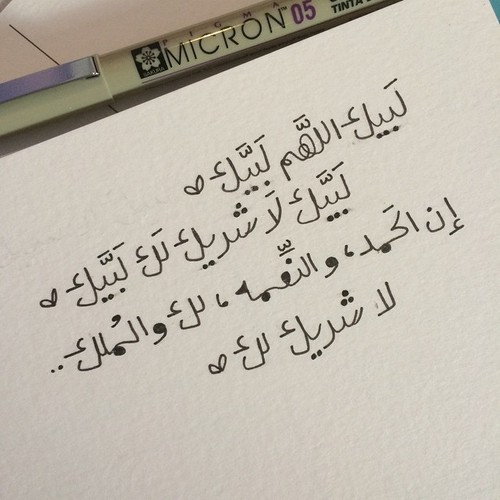 PIGMA™
MICRON 05
SAKURA
TINTA
لَبيك اللهَّم لَبَيَّك
لَبَيَّك لَا شريك لَك لَبَيَّك
إن الحَمد، والنِّعمه، لك والمُلك..
لا شريك لك